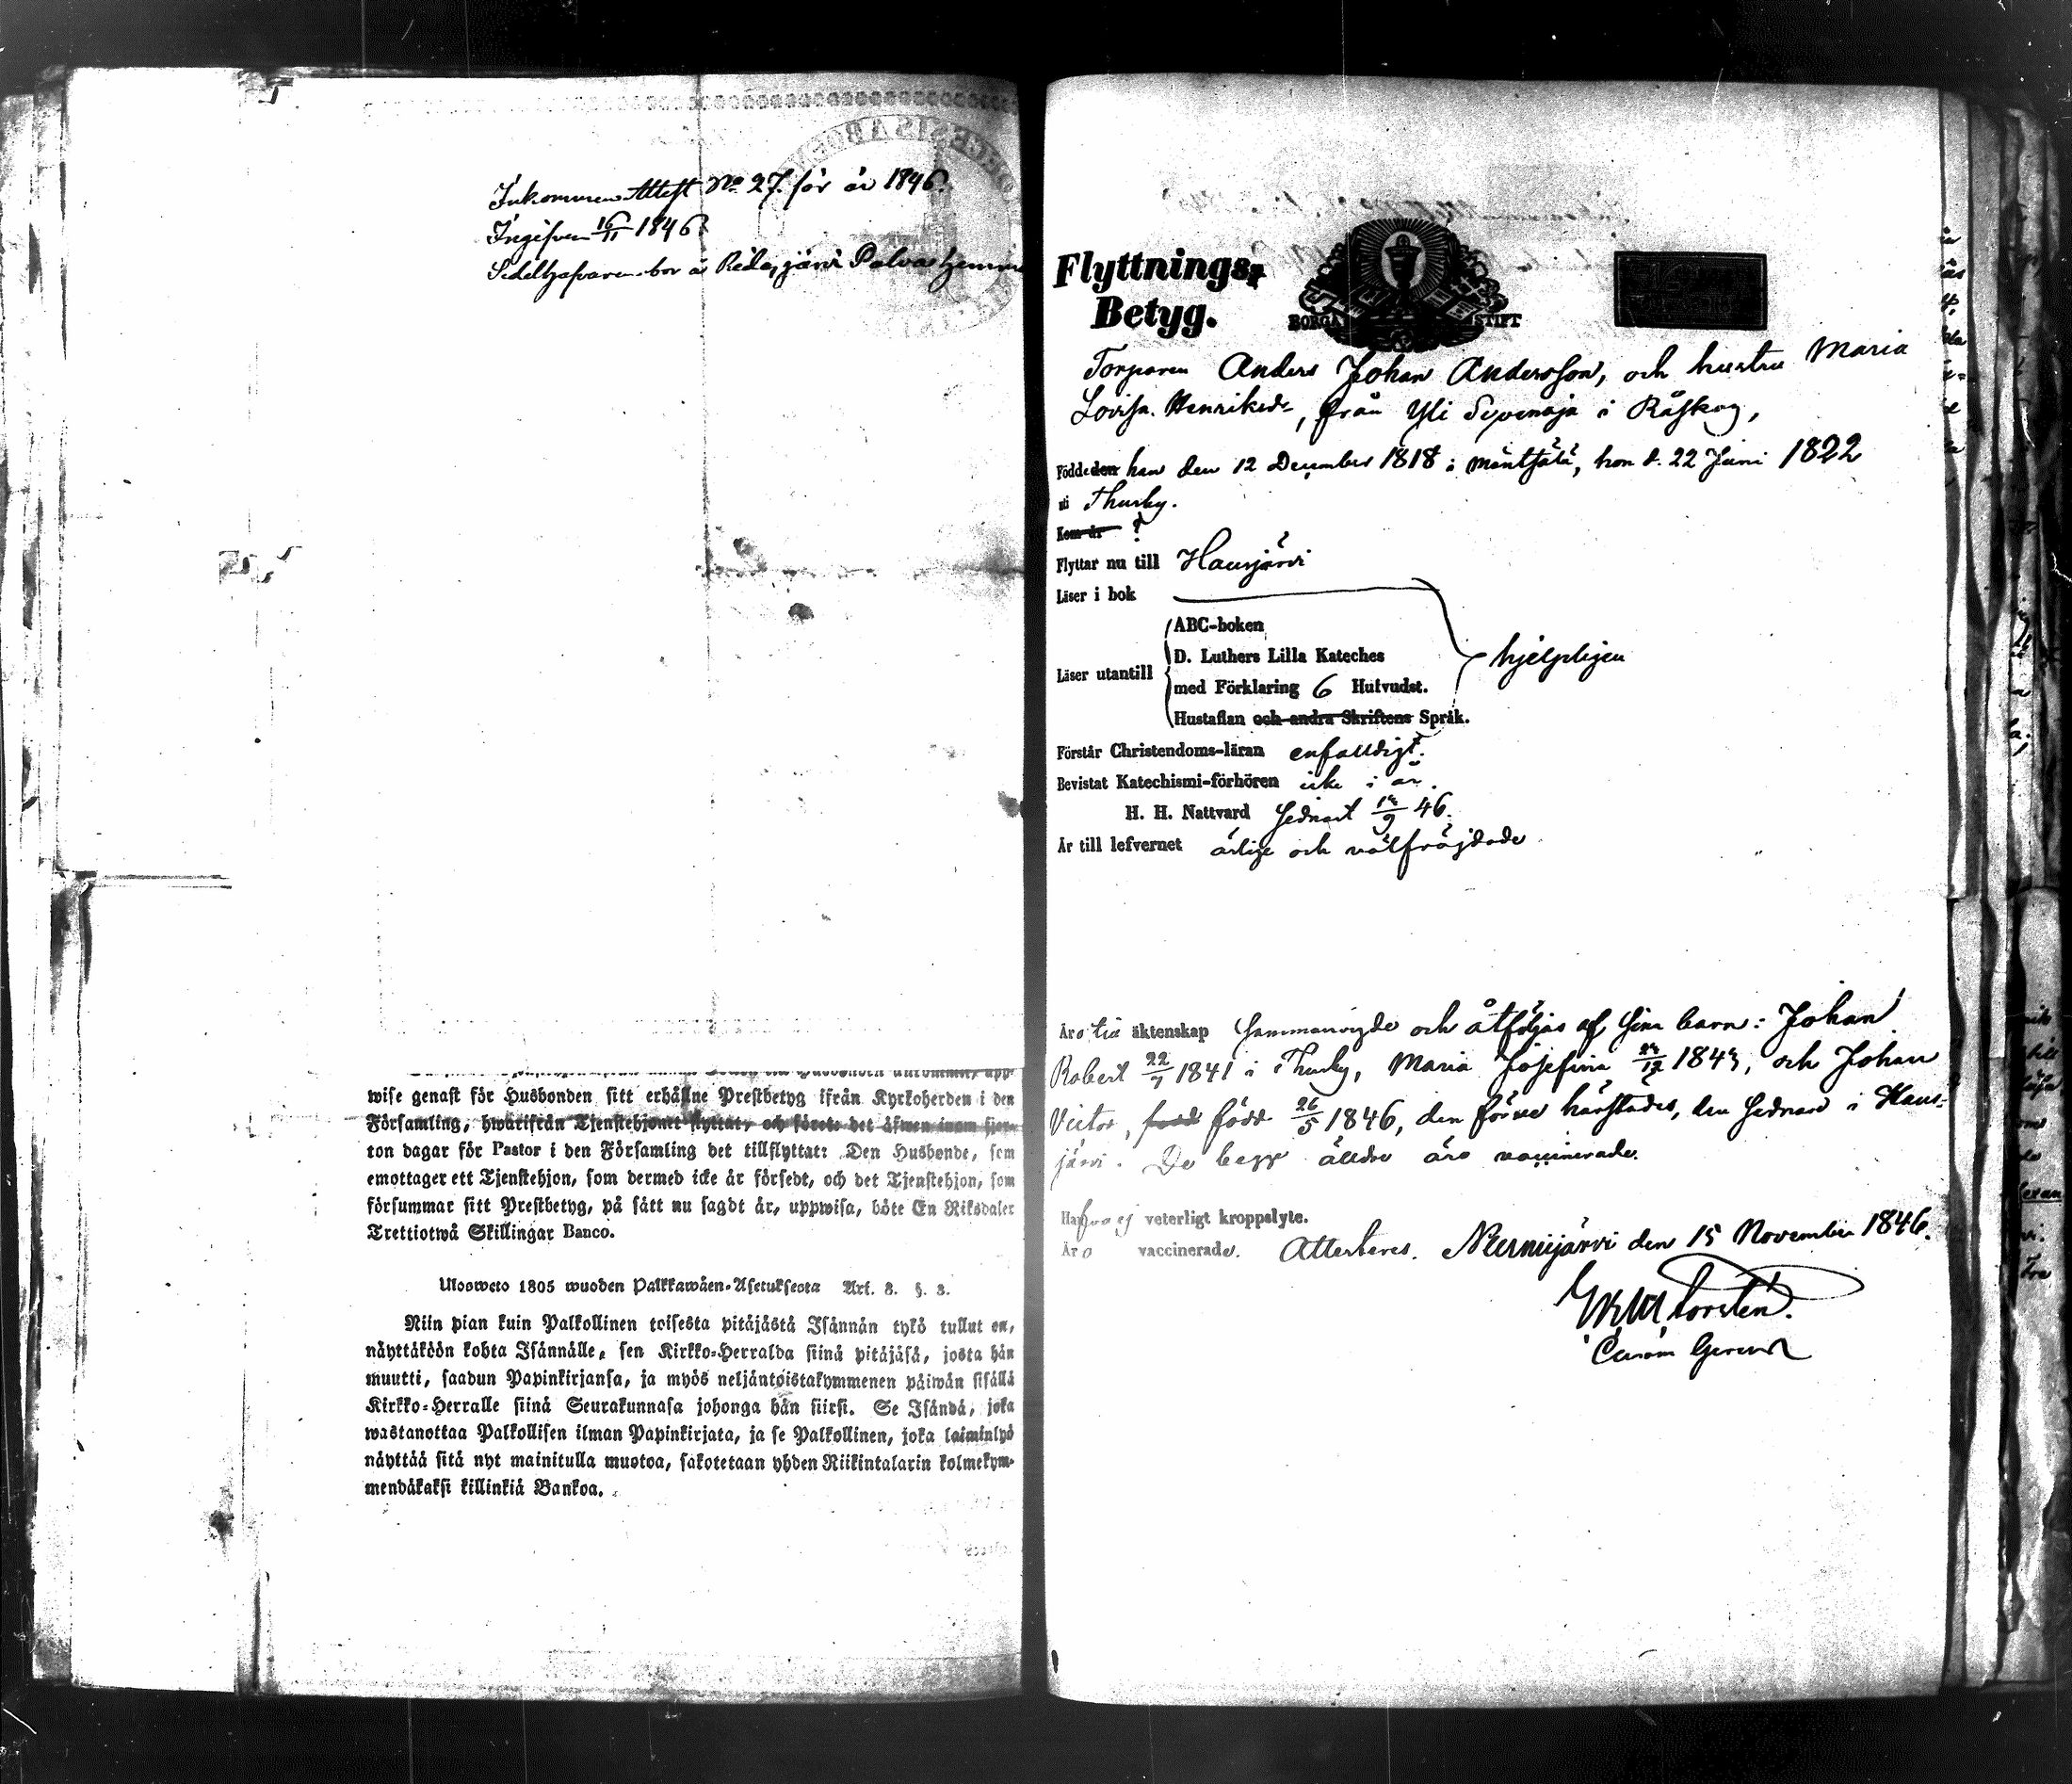 Inkommen Attest No 27. för år 1846.
Ingifven 16/11 1846.
Sedelhafvaren bor å Ridasjärvi Palvas hemman
wise genast för Husbonden sitt erhållne Prestbetyg ifrån Kyrkoherden i den
Församling, hwarifrån Tjenstehjonet flyttat, och förete det äfwen inom fjor-
ton dagar för Pastor i den Församling det tillflyttat: Den Husbonde, som
emottager ett Tjenstehjon, som dermed icke är försedt, och det Tjenstehjon, som
försummar sitt Prestbetyg, på sätt nu sagdt är, uppwisa, böte En Riksdaler
Trettiotwå Skillingar Banco.
Ulosweto 1805 wuoden Palkkawäen-Asetuksesta Art. 3. §. 3.
Niin pian kuin Palkollinen toisesta pitäjästä Isännän tykö tullut on,
näyttäköön kohta Isännälle, sen Kirkko-Herralda siinä pitäjäsä, josta hän
muutti, saadun Papinkirjansa, ja myös neljäntoistakymmenen päiwän sisällä
Kirkko-Herralle siinä Seurakunnasa johonga hän siirsi. Se Isändä, joka
wastanottaa Palkollisen ilman Papinkirjata, ja se Palkollinen, joka laiminlyö
näyttää sitä nyt mainitulla muotoa, sakotetaan yhden Riikintalarin kolmekym-
mendäkaksi killinkiä Bankoa.
Flyttnings-
Betyg.
BORGÅ STIFT
Torparen Anders Johan Andersson, och hustru Maria
Lovisa Henriksdr, från Yli Seppenoja i Råskog,
Födde den han den 12 December 1818 i Mäntsälä, hon d. 22 Juni 1822
uti Thusby.
Kom år ?
Flyttar nu till Hausjärvi
Läser i bok
Läser utantill
ABC-boken
D. Luthers Lilla Kateches
med Förklaring 6 Hufvudst.
Hustaflan och andra Skriftens Språk.
hjelpligen
Förstår Christendoms-läran enfalldigt.
Bevistat Katechismi-förhören icke i år.
H. H. Nattvard sednast /9 46.
Är till lefvernet ärlige och välfräjdade
Äro till äktenskap sammanvigde och åtföljas af sina barn: Johan
Robert 22/7 1841 i Thusby, Maria Josefina /12 1843, och Johan
Victor, född född 26/5 1846, den förre härstädes, den sednare i Haus-
järvi. De begge äldre äro vaccinerade.
Hafva ej veterligt kroppslyte.
Äro vaccinerade. Attesteres. Nurmijärvi den 15 November 1846.